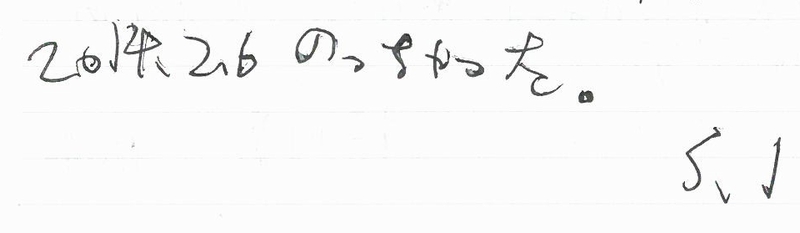 2014.2.6 のっちゃった。
5.1